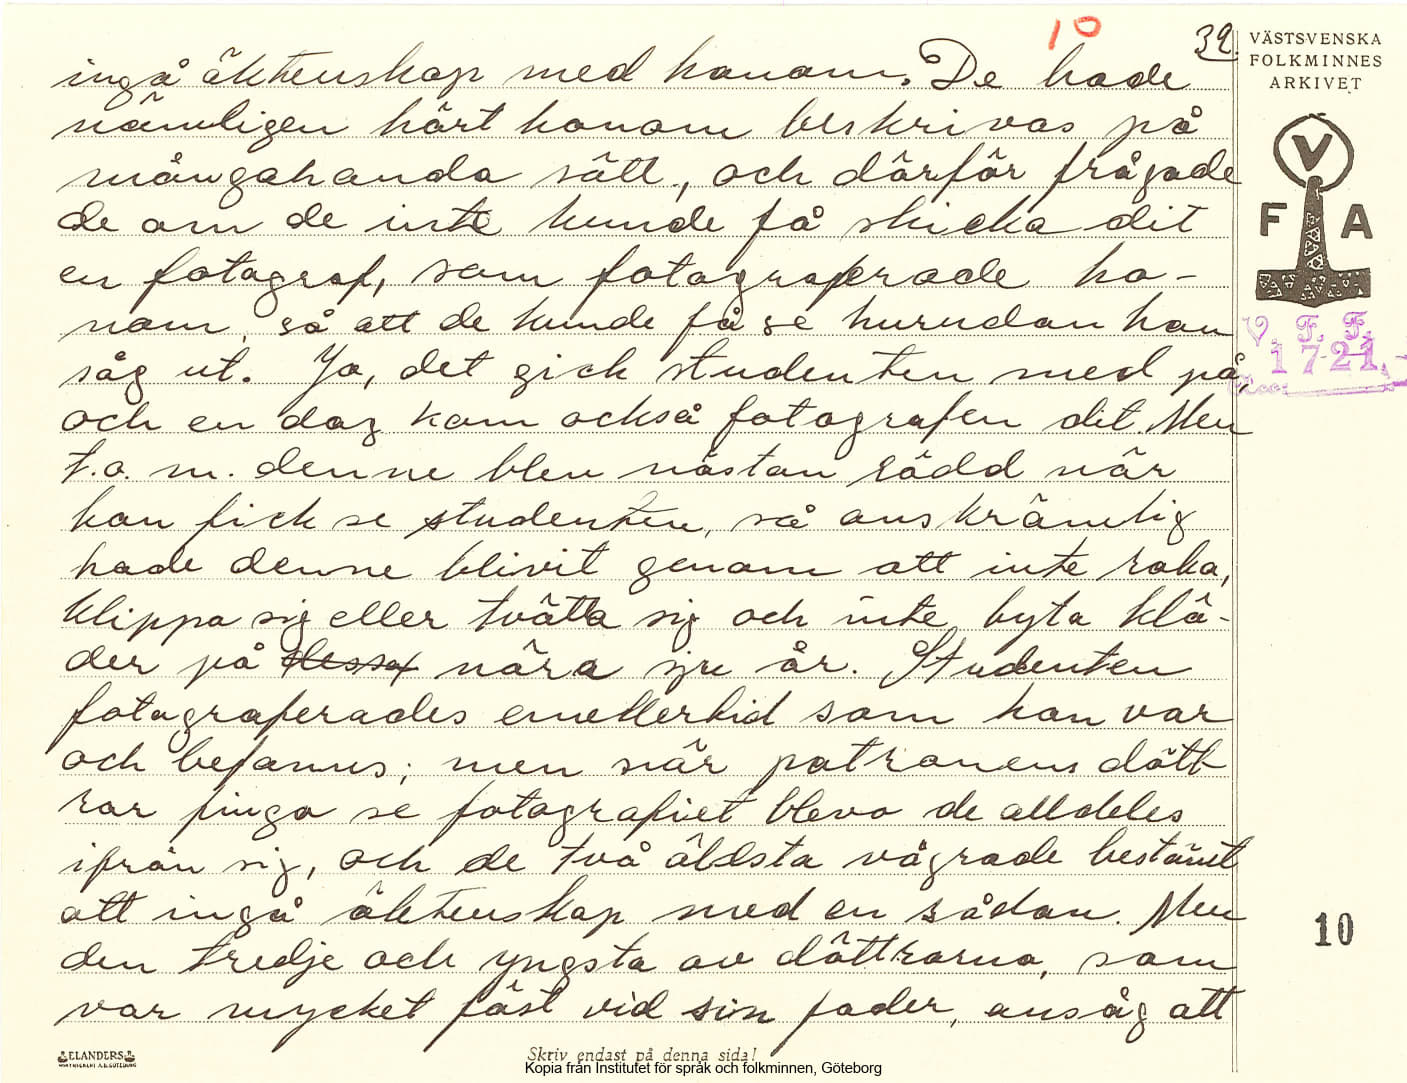 10
32.
VÄSTSVENSKA
FOLKMINNES
ARKIVET
V
F A
V. F. F.
1721,
ingå äktenskap med honom. De hade
nämligen hört honom beskrivas på
mångahanda sätt, och därför frågade
de om de inte kunde få skicka dit
en fotograf, som fotograferade ho-
nom, så att de kunde få se hurudan han
såg ut. Ja, det gick studenten med på,
och en dag kom också fotografen dit. Men
t.o.m. denne blev nästan rädd när
han fick se studenten, så anskrämlig
hade denne blivit genom att inte raka,
klippa sig eller tvätta sig och inte byta klä-
der på dessa nära sju år. Studenten
fotograferades emellertid som han var
och befanns; men när patronens dött-
rar fingo se fotografiet blevo de alldeles
ifrån sig, och de två äldsta vägrade bestämt
att ingå äktenskap med en sådan. Men
den tredje och yngsta av döttrarna, som
var mycket fäst vid sin fader, ansåg att
10
ELANDERS
Skriv endast på denna sida!
Kopia från Institutet för språk och folkminnen, Göteborg